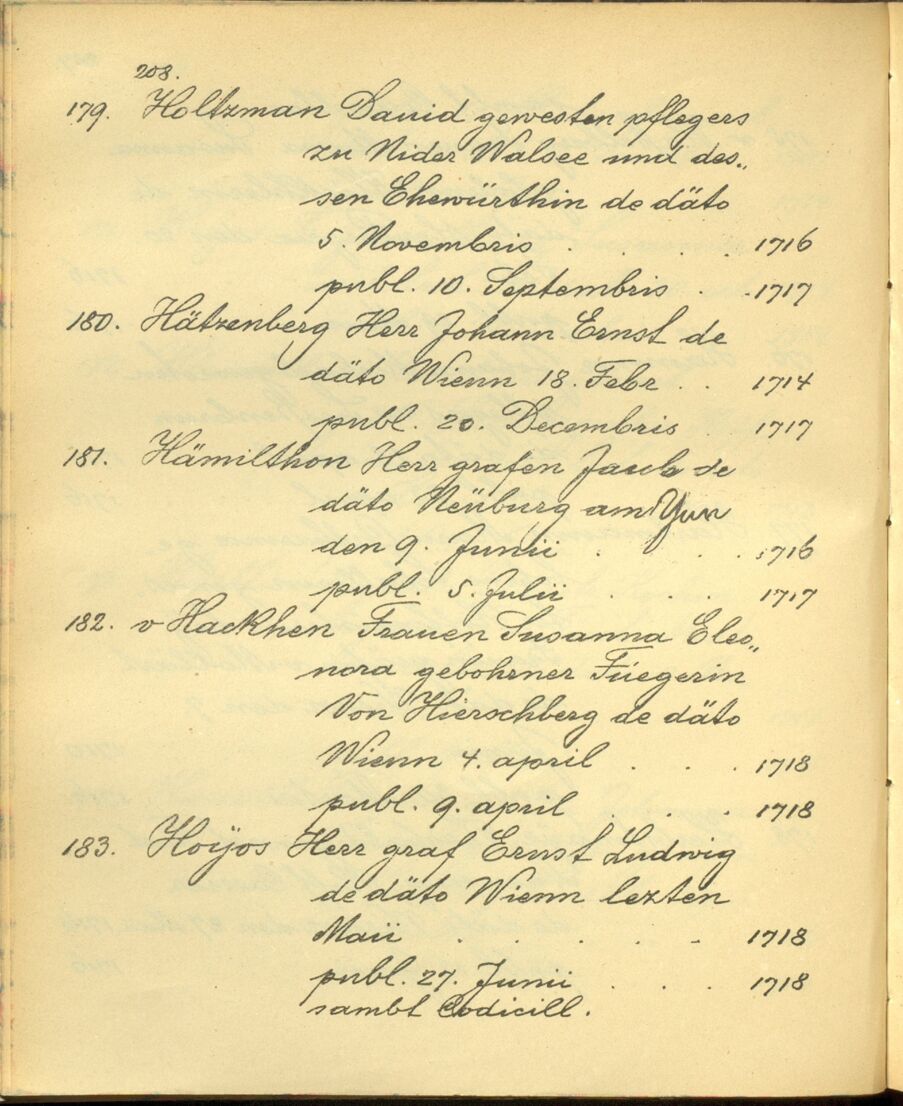 208.
179. Holtzman David gewesten pflegers
zu Nider Walsee und des„
sen Ehewürthin de däto
5. Novembris . . . . 1716
publ. 10. Septembris . . 1717
180. Hätzenberg Herr Johann Ernst de
däto Wienn 18. Febr . . 1714
publ. 20. Decembris . 1717
181. Hämilthon Herr grafen Jacob de
däto Neüburg am Yun
den 9. Junii . . . 1716
publ. 5. Julii . . . 1717
182. v Hackhen Frauen Susanna Eleo„
nora gebohrner Füegerin
Von Hierschberg de däto
Wienn 4. april . . . 1718
publ. 9. april . . . 1718
183. Hoijos Herr graf Ernst Ludwig
de däto Wienn lezten
Maii . . . . . 1718
publ. 27. Junii . . . 1718
sambt Codicill.